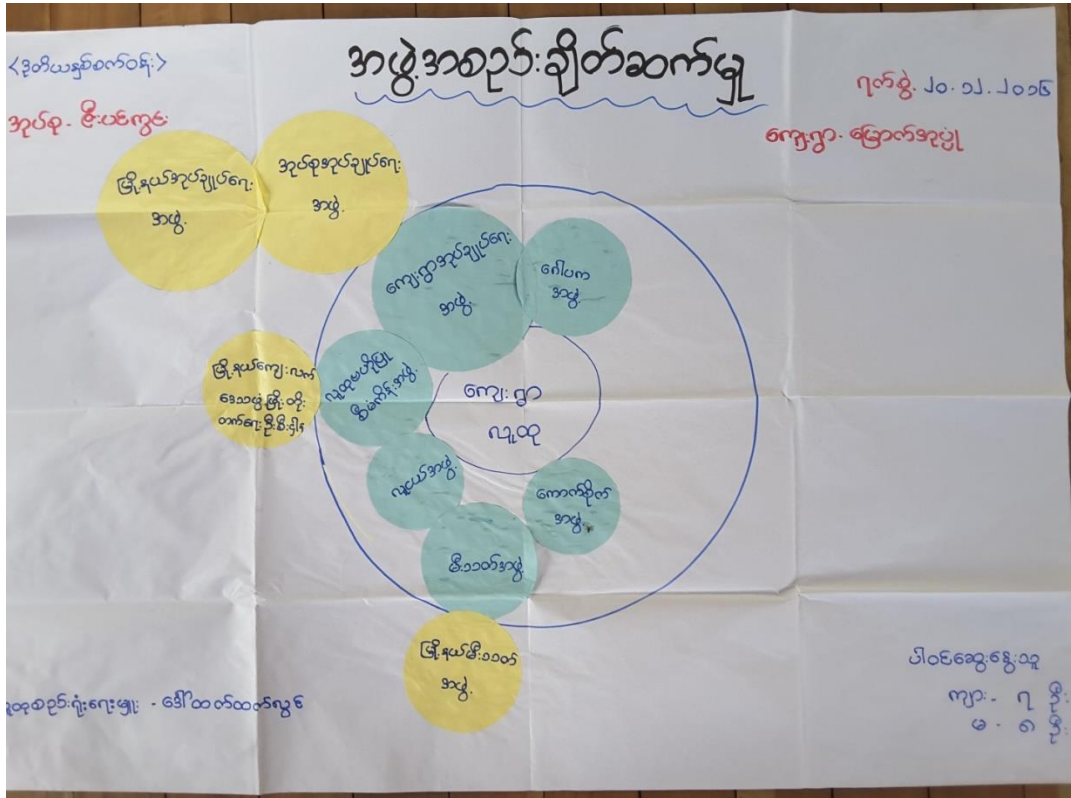 <ဒုတိယနှစ်စက်ဝန်း>
အဖွဲ့အစဉ်းချိတ်ဆက်မှု
ရက်စွဲ. ၂၀.၁၂.၂၀၁၆
အုပ်စု- ဇီးပင်ကွင်း
ကျေးရွာ- မြောက်အုပ်ပုံ
မြို့နယ်အုပ်ချုပ်ရေး
အဖွဲ့.
အုပ်စုအုပ်ချုပ်ရေး
အဖွဲ့.
ကျေးရွာအုပ်ချုပ်ရေး
အဖွဲ့.
ဂေါပက
အဖွဲ့.
မြို့နယ်ကျေးလက်
ဒေသဖွံ့ဖြိုးတိုး
တက်ရေးဦးစီးဌါန
လူထုဗဟိုပြု
စီမံကိန်းအဖွဲ့.
ကျေးရွာ
လူထု
လူငယ်အဖွဲ့.
ကောက်စိုက်
အဖွဲ့.
မီးသတ်အဖွဲ့
မြို့နယ်မီးသတ်
အဖွဲ့.
လူထုစည်းရုံးရေးမှူး - ဒေါ်ထက်ထက်လွင်
ပါဝင်ဆွေးနွေးသူ
ကျား- ၇ ဦး
မ - ၈ ဦး